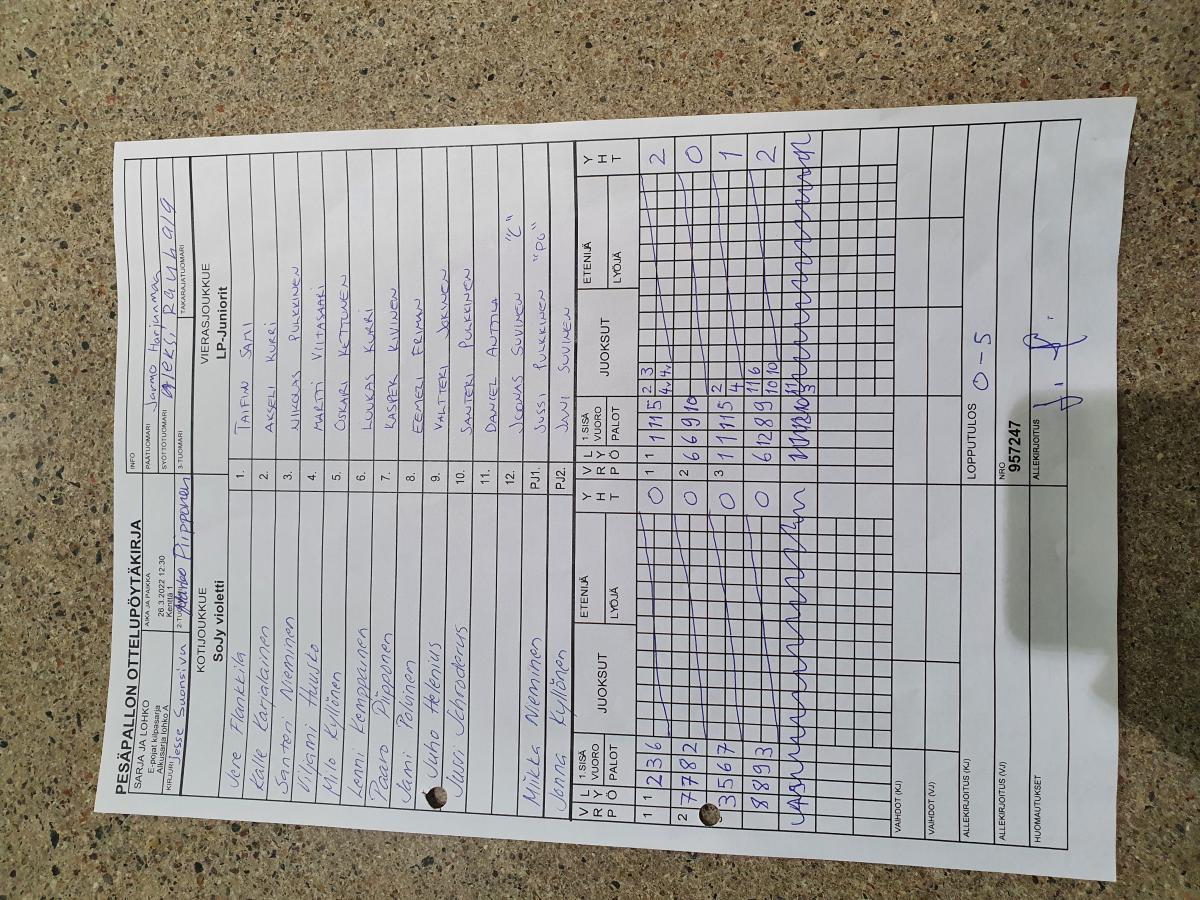 PESÄPALLON OTTELUPÖYTÄKIRJA
SARJA JA LOHKO
E-pojat kilpasarja
Alkusarja lohko A
AIKA JA PAIKKA
26.3.2022 12:30
Kenttä 1
INFO
PÄÄTUOMARI Jarmo Harjunmaa
SYÖTTÖTUOMARI Aleksi Rauhala
KIRJURI Jesse Suonsivu
2-TUOMARI Marko Piipponen
3-TUOMARI
TAKARAJATUOMARI
KOTIJOUKKUE
SoJy violetti
VIERASJOUKKUE
LP-Juniorit
Vere Flankkila 1. TAIFIN SAMI
Kalle Karjalainen 2. AKSELI KURRI
Santeri Nieminen 3. NIKOLAS PULKKINEN
Viljami Huusko 4. MARTTI VIITASAARI
Milo Kyllönen 5. OSKARI KETTUNEN
Lenni Kemppainen 6. LUUKAS KURRI
Paavo Piipponen 7. KASPER KIVINEN
Jami Polvinen 8. EEMELI ERIMAN
Juho Helenius 9. VALTTERI JOKINEN
Juuri Schroderus 10. SANTERI PULKKINEN
11. DANIEL ANTTILA
12. JOONAS SUVINEN "C"
Miikka Nieminen PJ1. JUSSI PULKKINEN "PG"
Jonna Kyllönen PJ2. JANI SUVINEN
VRÖ LYP 1.SISÄ VUORO PALOT JUOKSUT ETENIJÄ LYÖJÄ YHT VRÖ LYP 1.SISÄ VUORO PALOT JUOKSUT ETENIJÄ LYÖJÄ YHT
1 1 2 3 6 0 1 1 1 11 5 2 3 2
4v 4v
2 7 7 8 2 0 2 6 6 9 10 0
3 5 6 7 0 3 1 11 11 5 2 1
4
8 8 9 3 0 6 12 8 9 11 6 2
10 10
VAIHDOT (KJ)
VAIHDOT (VJ)
ALLEKIRJOITUS (KJ)
LOPPUTULOS 0-5
ALLEKIRJOITUS (VJ)
NRO
957247
HUOMAUTUKSET
ALLEKIRJOITUS